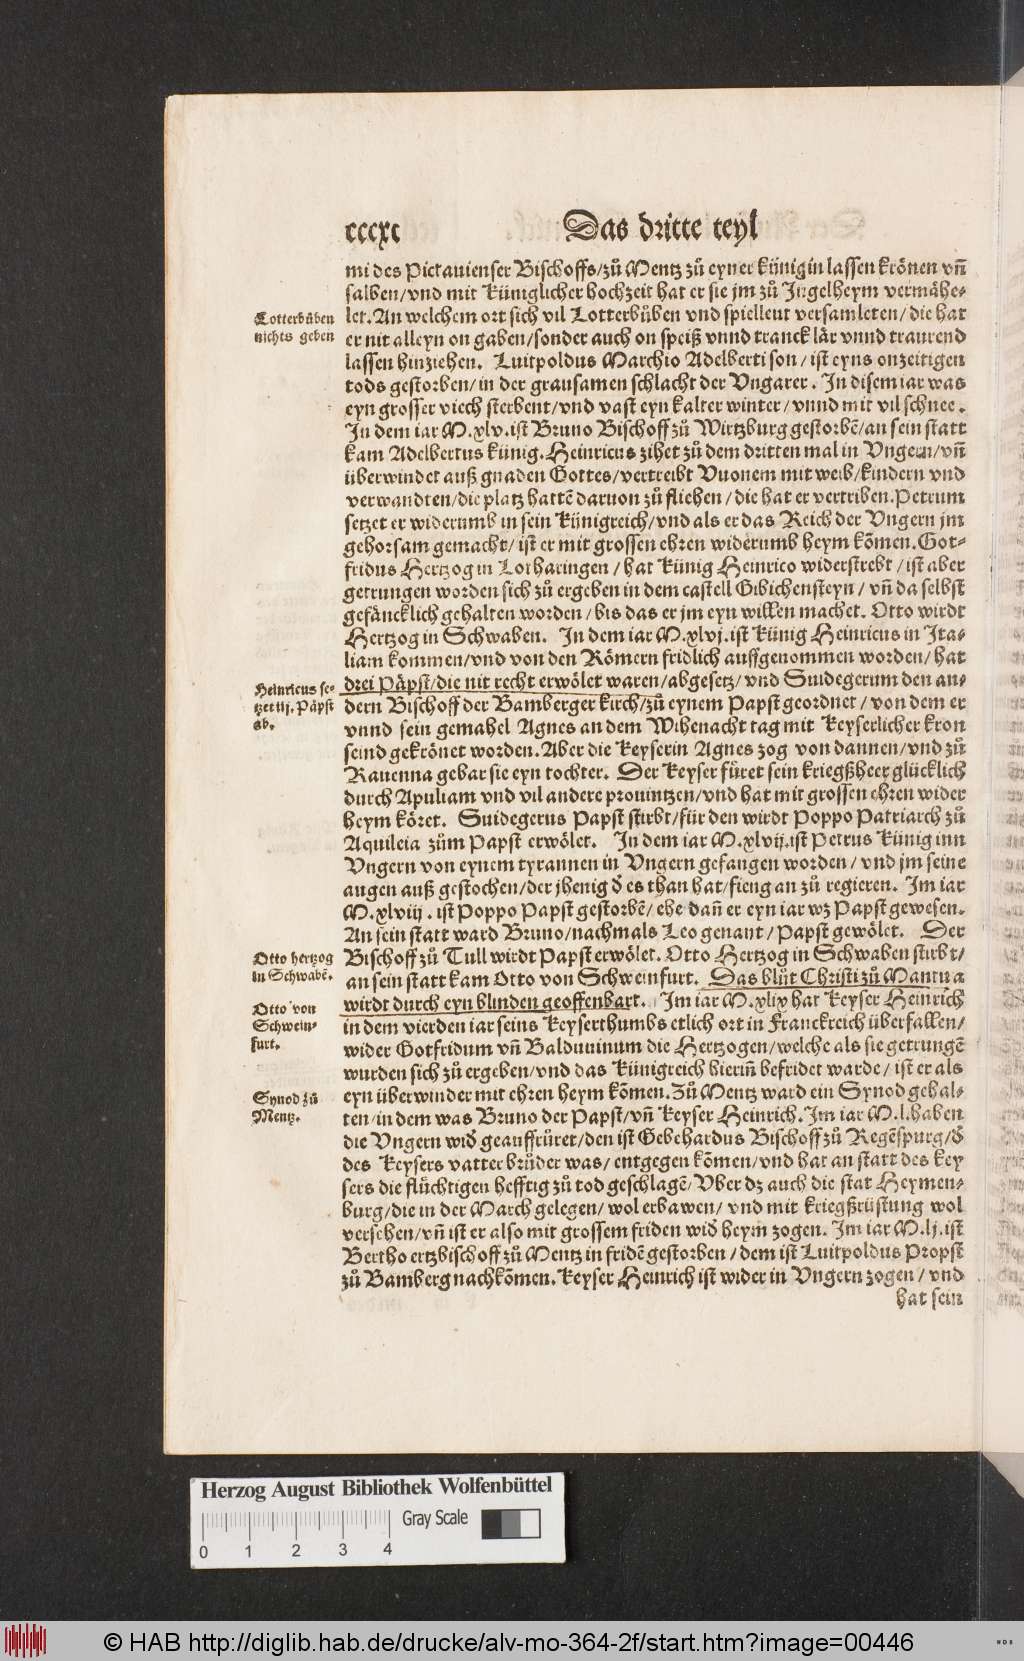 cccxc Das dritte teyl
mi des Pictauienser Bischoffs/zů Mentz zů eyner künigin lassen krönen vñ
salben/vnd mit Küniglicher hochzeit hat er sie jm zů Ingelheym vermähe-
Lotterbůben
nichts geben
let. An welchem ort sich vil Lotterbůben vnd spielleut versamleten/die hat
er nit alleyn on gaben/sonder auch on speiß vnnd tranck lär vnnd traurend
lassen hinziehen. Luitpoldus Marchio Adelberti son/ist eyns onzeitigen
tods gestorben/in der grausamen schlacht der Vngarer. In disem iar was
eyn grosser viech sterbent/vnd vast eyn kalter winter/vnnd mit vil schnee.
In dem iar M.xlv.ist Bruno Bischoff zů Wirtzburg gestorbē/an sein statt
kam Adelbertus künig. Heinricus zihet zů dem dritten mal in Vngern/vñ
überwindet auß gnaden Gottes/vertreibt Vuonem mit weib/kindern vnd
verwandten/die platz hattē daruon zů fliehen/die hat er vertriben. Petrum
setzet er widerumb in sein Künigreich/vnd als er das Reich der Vngern jm
gehorsam gemacht/ist er mit grossen ehren widerumb heym kōmen. Got-
fridus Hertzog in Lotharingen/hat Künig Heinrico widerstrebt/ist aber
getrungen worden sich zů ergeben in dem castell Gibichensteyn/vñ da selbst
gefäncklich gehalten worden/bis das er jm eyn willen machet. Otto wirdt
Hertzog in Schwaben. In dem iar M.xlvj.ist Künig Heinricus in Ita-
liam kommen/vnd von den Römern fridlich auffgenommen worden/hat
Heinricus se-
tzet iij. Päpst
ab.
drei Päpst/die nit recht erwölet waren/abgesetz/vnd Suidegerum den an-
dern Bischoff der Bamberger kirch/zů eynem Papst geordnet/von dem er
vnnd sein gemahel Agnes an dem Wihenacht tag mit Keyserlicher kron
seind gekrönet worden. Aber die Keyserin Agnes zog von dannen/vnd zů
Rauenna gebar sie eyn tochter. Der Keyser füret sein kriegßheer glücklich
durch Apuliam vnd vil andere prouintzen/vnd hat mit grossen ehren wider
heym köret. Suidegerus Papst stirbt/für den wirdt Poppo Patriarch zů
Aquileia zům Papst erwölet. In dem iar M.xlvij.ist Petrus Künig inn
Vngern von eynem tyrannen in Vngern gefangen worden/vnd jm seine
augen auß gestochen/der jhenig d̄ es than hat/fieng an zů regieren. Im iar
M.xlviij. ist Poppo Papst gestorbē/ehe dañ er eyn iar wz Papst gewesen.
An sein statt ward Bruno/nachmals Leo genant/Papst gewölet. Der
Otto hertzog
in Schwabē.
Bischoff zů Tull wirdt Papst erwölet. Otto Hertzog in Schwaben stirbt/
an sein statt kam Otto von Schweinfurt. Das blůt Christi zů Mantua
Otto von
Schwein-
furt.
wirdt durch eyn blinden geoffenbart. Im iar M.xlix hat Keyser Heinrich
in dem vierden iar seins Keyserthumbs etlich ort in Franckreich überfallen/
wider Gotfridum vñ Balduuinum die Hertzogen/welche als sie getrungē
wurden sich zů ergeben/vnd das Künigreich hierin̄ befridet warde/ist er als
Synod zů
Mentz.
eyn überwinder mit ehren heym kōmen. Zů Mentz ward ein Synod gehal-
ten/in dem was Bruno der Papst/vñ Keyser Heinrich. Im iar M.l.haben
die Vngern wid̄ geauffrůret/den ist Gebehardus Bischoff zů Regēspurg/d̄
des Keysers vatter brůder was/entgegen kōmen/vnd hat an statt des key
sers die flüchtigen hefftig zů tod geschlagē/Vber dz auch die stat Heymen-
burg/die in der March gelegen/wol erbawen/vnd mit kriegßrüstung wol
versehen/vñ ist er also mit grossem friden wid̄ heym zogen. Im iar M.lj.ist
Bertho ertzbischoff zů Mentz in fridē gestorben/dem ist Luitpoldus Propst
zů Bamberg nachkōmen. Keyser Heinrich ist wider in Vngern zogen/vnd
hat sein
Herzog August Bibliothek Wolfenbüttel
0 1 2 3 4
Gray Scale
© HAB http://diglib.hab.de/drucke/alv-mo-364-2f/start.htm?image=00446